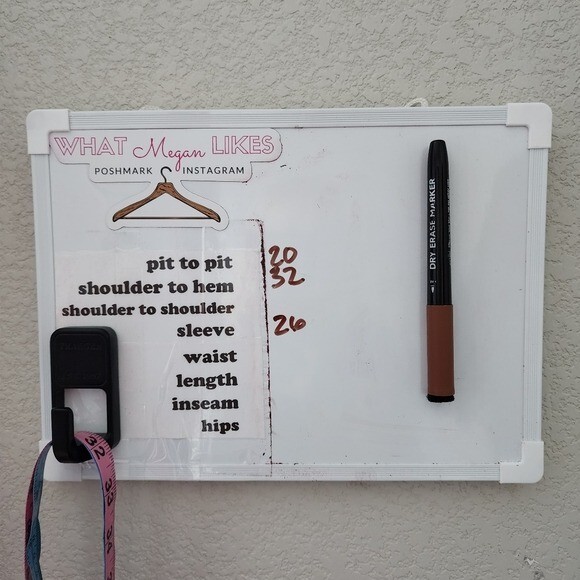 WHAT Megan LIKES
POSHMARK INSTAGRAM
pit to pit 20
shoulder to hem 32
shoulder to shoulder
sleeve 26
waist
length
inseam
hips
DRY ERASE MARKER
32
33